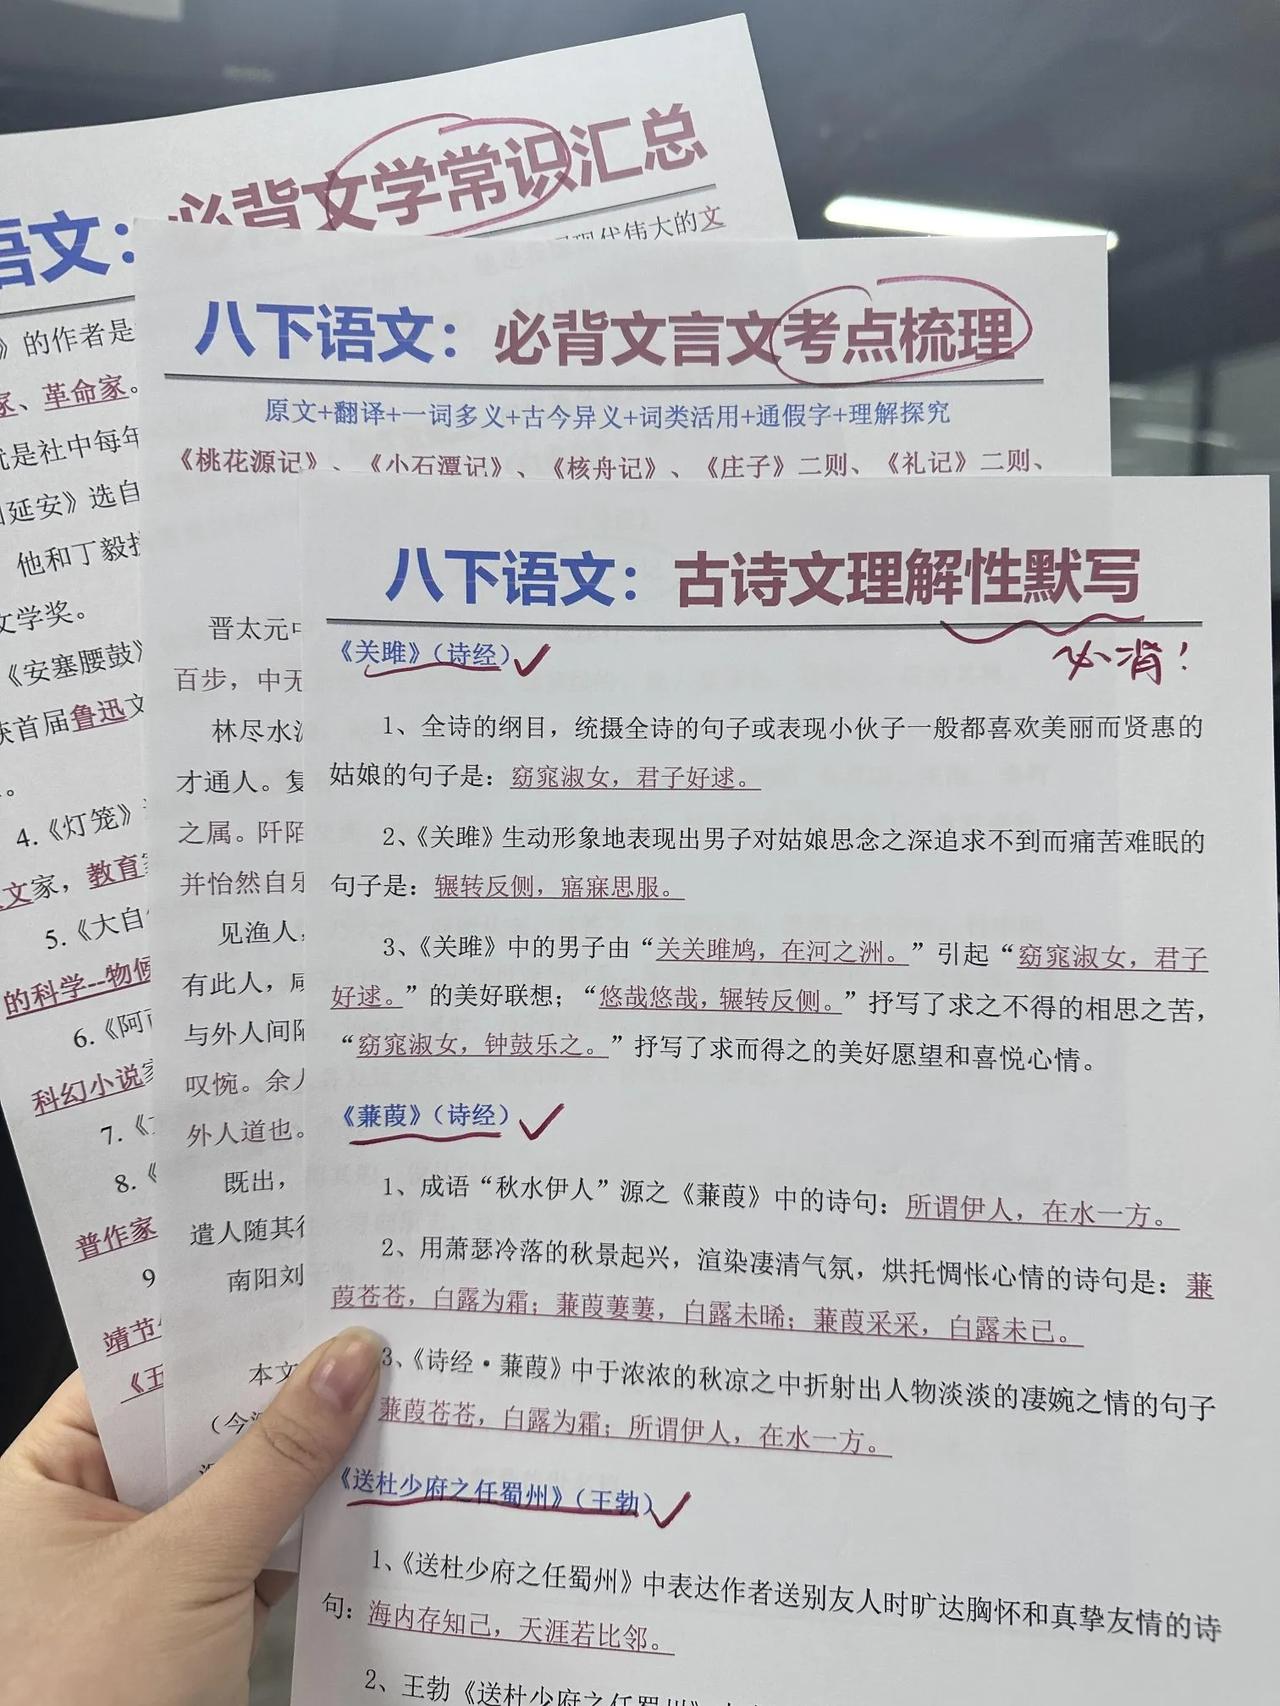 语文：必背文学常识汇总
现代伟大的文
》的作者是
家、革命家。
就是社中每年
延安》选自
他和丁毅
文学奖。
《安塞腰鼓》
获首届鲁迅文
4.《灯笼》
文家，教育
5.《大自
的科学--物候
6.《阿
科幻小说家
7.《
8.《
普作家
9
靖节
《五
八下语文：必背文言文考点梳理
原文+翻译+一词多义+古今异义+词类活用+通假字+理解探究
《桃花源记》、《小石潭记》、《核舟记》、《庄子》二则、《礼记》二则、
晋太元中
百步，中无
林尽水源
才通人。复
之属。阡陌
并怡然自乐
见渔人，
有此人，咸
与外人间隔
叹惋。余人
外人道也。
既出，
遣人随其往
南阳刘
本文
（今
八下语文：古诗文理解性默写
必背！
《关雎》（诗经）
1、全诗的纲目，统摄全诗的句子或表现小伙子一般都喜欢美丽而贤惠的
姑娘的句子是：窈窕淑女，君子好逑。
2、《关雎》生动形象地表现出男子对姑娘思念之深追求不到而痛苦难眠的
句子是：辗转反侧，寤寐思服。
3、《关雎》中的男子由“关关雎鸠，在河之洲。”引起“窈窕淑女，君子
好逑。”的美好联想；“悠哉悠哉，辗转反侧。”抒写了求之不得的相思之苦，
“窈窕淑女，钟鼓乐之。”抒写了求而得之的美好愿望和喜悦心情。
《蒹葭》（诗经）
1、成语“秋水伊人”源之《蒹葭》中的诗句：所谓伊人，在水一方。
2、用萧瑟冷落的秋景起兴，渲染凄清气氛，烘托惆怅心情的诗句是：蒹
葭苍苍，白露为霜；蒹葭萋萋，白露未晞；蒹葭采采，白露未已。
3、《诗经·蒹葭》中于浓浓的秋凉之中折射出人物淡淡的凄婉之情的句子
蒹葭苍苍，白露为霜；所谓伊人，在水一方。
《送杜少府之任蜀州》（王勃）
1、《送杜少府之任蜀州》中表达作者送别友人时旷达胸怀和真挚友情的诗
句：海内存知己，天涯若比邻。
2、王勃《送杜少府之任蜀州》